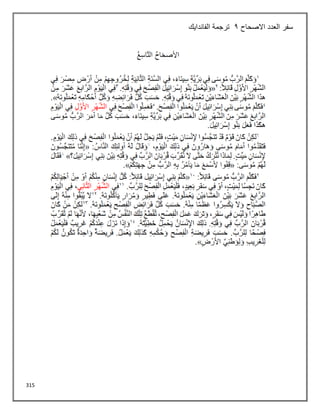 سفر العدد الاصحاح ٩ ترجمة الفاندايك
اَلأَصْحَاحُ التَّاسِعُ
١وَكَلَّمَ الرَّبُّ مُوسَى فِي بَرِّيَّةِ سِينَاءَ، فِي السَّنَةِ الثَّانِيَةِ لِخُرُوجِهِمْ مِنْ أَرْضِ مِصْرَ فِي
الشَّهْرِ الأَوَّلِ قَائِلاً: ٢«وَلْيَعْمَلْ بَنُو إِسْرَائِيلَ الْفِصْحَ فِي وَقْتِهِ. ٣فِي الْيَوْمِ الرَّابعِ عَشَرَ مِنْ
هذَا الشَّهْرِ بَيْنَ الْعِشَاءَيْنِ تَعْمَلُونَهُ فِي وَقْتِهِ. حَسَبَ كُلِّ فَرَائِضِهِ وَكُلِّ أَحْكَامِهِ تَعْمَلُونَهُ».
٤فَكَلَّمَ مُوسَى بَنِي إِسْرَائِيلَ أَنْ يَعْمَلُوا الْفِصْحَ. ٥فَعَمِلُوا الْفِصْحَ فِي الشَّهْرِ الأَوَّلِ فِي الْيَوْمِ
الرَّابعِ عَشَرَ مِنَ الشَّهْرِ بَيْنَ الْعِشَاءَيْنِ فِي بَرِّيَّةِ سِينَاءَ، حَسَبَ كُلِّ مَا أَمَرَ الرَّبُّ مُوسَى
هكَذَا فَعَلَ بَنُو إِسْرَائِيلَ.
٦لكِنْ كَانَ قَوْمٌ قَدْ تَنَجَّسُوا لإِنْسَانٍ مَيْتٍ، فَلَمْ يَحِلَّ لَهُمْ أَنْ يَعْمَلُوا الْفِصْحَ فِي ذلِكَ الْيَوْمِ.
فَتَقَدَّمُوا أَمَامَ مُوسَى وَهَارُونَ فِي ذلِكَ الْيَوْمِ، ٧وَقَالَ لَهُ أُولئِكَ النَّاسُ: «إِنَّنَا مُتَنَجِّسُونَ
لإِنْسَانٍ مَيْتٍ. لِمَاذَا نُتْرَكُ حَتَّى لاَ نُقَرِّبَ قُرْبَانَ الرَّبِّ فِي وَقْتِهِ بَيْنَ بَنِي إِسْرَائِيلَ؟» ٨فَقَالَ
لَهُمْ مُوسَى: «قِفُوا لأَسْمَعَ مَا يَأْمُرُ بِهِ الرَّبُّ مِنْ جِهَتِكُمْ».
٩فَكَلَّمَ الرَّبُّ مُوسَى قَائِلاً: ١٠«كَلِّمْ بَنِي إِسْرَائِيلَ قَائِلاً: كُلُّ إِنْسَانٍ مِنْكُمْ أَوْ مِنْ أَجْيَالِكُمْ
كَانَ نَجِسًا لِمَيْتٍ، أَوْ فِي سَفَرٍ بَعِيدٍ، فَلْيَعْمَلِ الْفِصْحَ لِلرَّبِّ. ١١فِي الشَّهْرِ الثَّانِي، فِي الْيَوْمِ
الرَّابعِ عَشَرَ بَيْنَ الْعِشَاءَيْنِ يَعْمَلُونَهُ. عَلَى فَطِيرٍ وَمُرَارٍ يَأْكُلُونَهُ. ١٢لاَ يُبْقُوا مِنْهُ إِلَى
الصَّبَاحِ وَلاَ يَكْسِرُوا عَظْمًا مِنْهُ. حَسَبَ كُلِّ فَرَائِضِ الْفِصْحِ يَعْمَلُونَهُ. ١٣لكِنْ مَنْ كَانَ
طَاهِرًا وَلَيْسَ فِي سَفَرٍ، وَتَرَكَ عَمَلَ الْفِصْحِ، تُقْطَعُ تِلْكَ النَّفْسُ مِنْ شَعْبِهَا، لأَنَّهَا لَمْ تُقَرِّبْ
قُرْبَانَ الرَّبِّ فِي وَقْتِهِ. ذلِكَ الإِنْسَانُ يَحْمِلُ خَطِيَّتَهُ. ١٤وَإِذَا نَزَلَ عِنْدَكُمْ غَرِيبٌ فَلْيَعْمَلْ
فِصْحًا لِلرَّبِّ. حَسَبَ فَرِيضَةِ الْفِصْحِ وَحُكْمِهِ كَذلِكَ يَعْمَلُ. فَرِيضَةٌ وَاحِدَةٌ تَكُونُ لَكُمْ
لِلْغَرِيبِ وَلِوَطَنِيِّ الأَرْضِ».
315